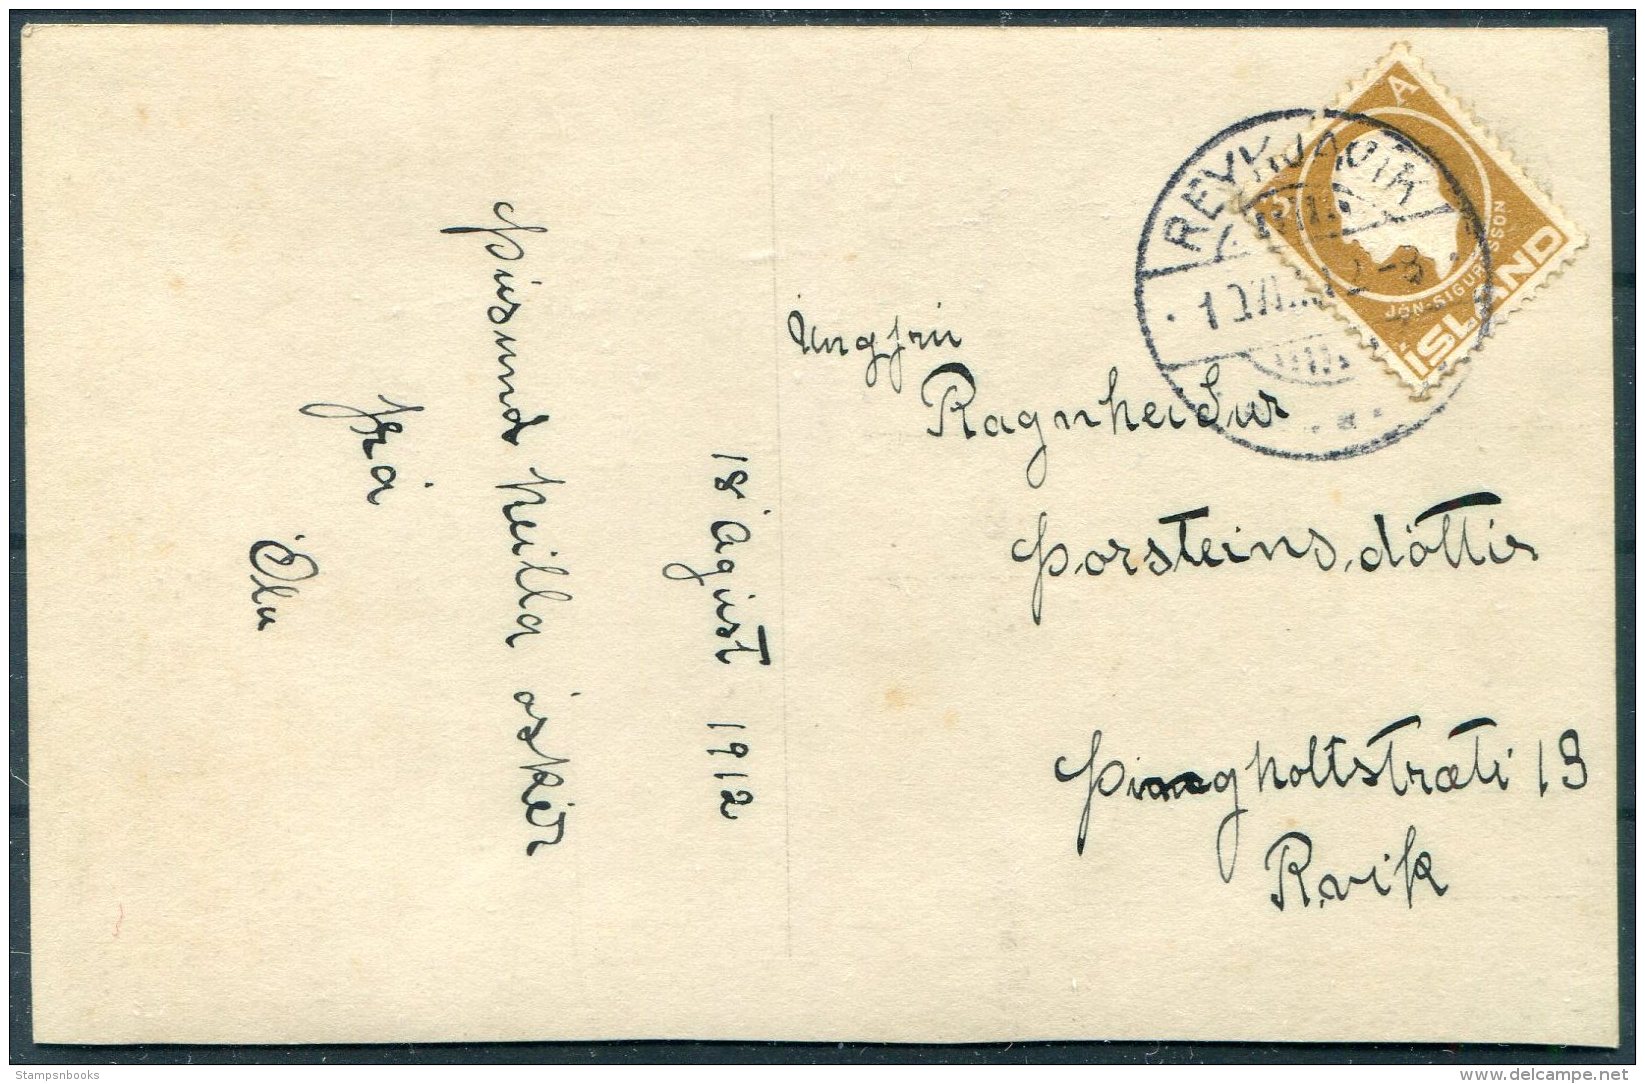 Þúsund heilla óskir
frá
Ólu
18 Ágúst 1912
Ungfrú
Ragnheiður
Þorsteins,dóttir
Þingholtstræti 13
R.vík
REYKJAVIK
A
ÍSLAND
JÓN·SIGURÐSSON
Stampsnbooks